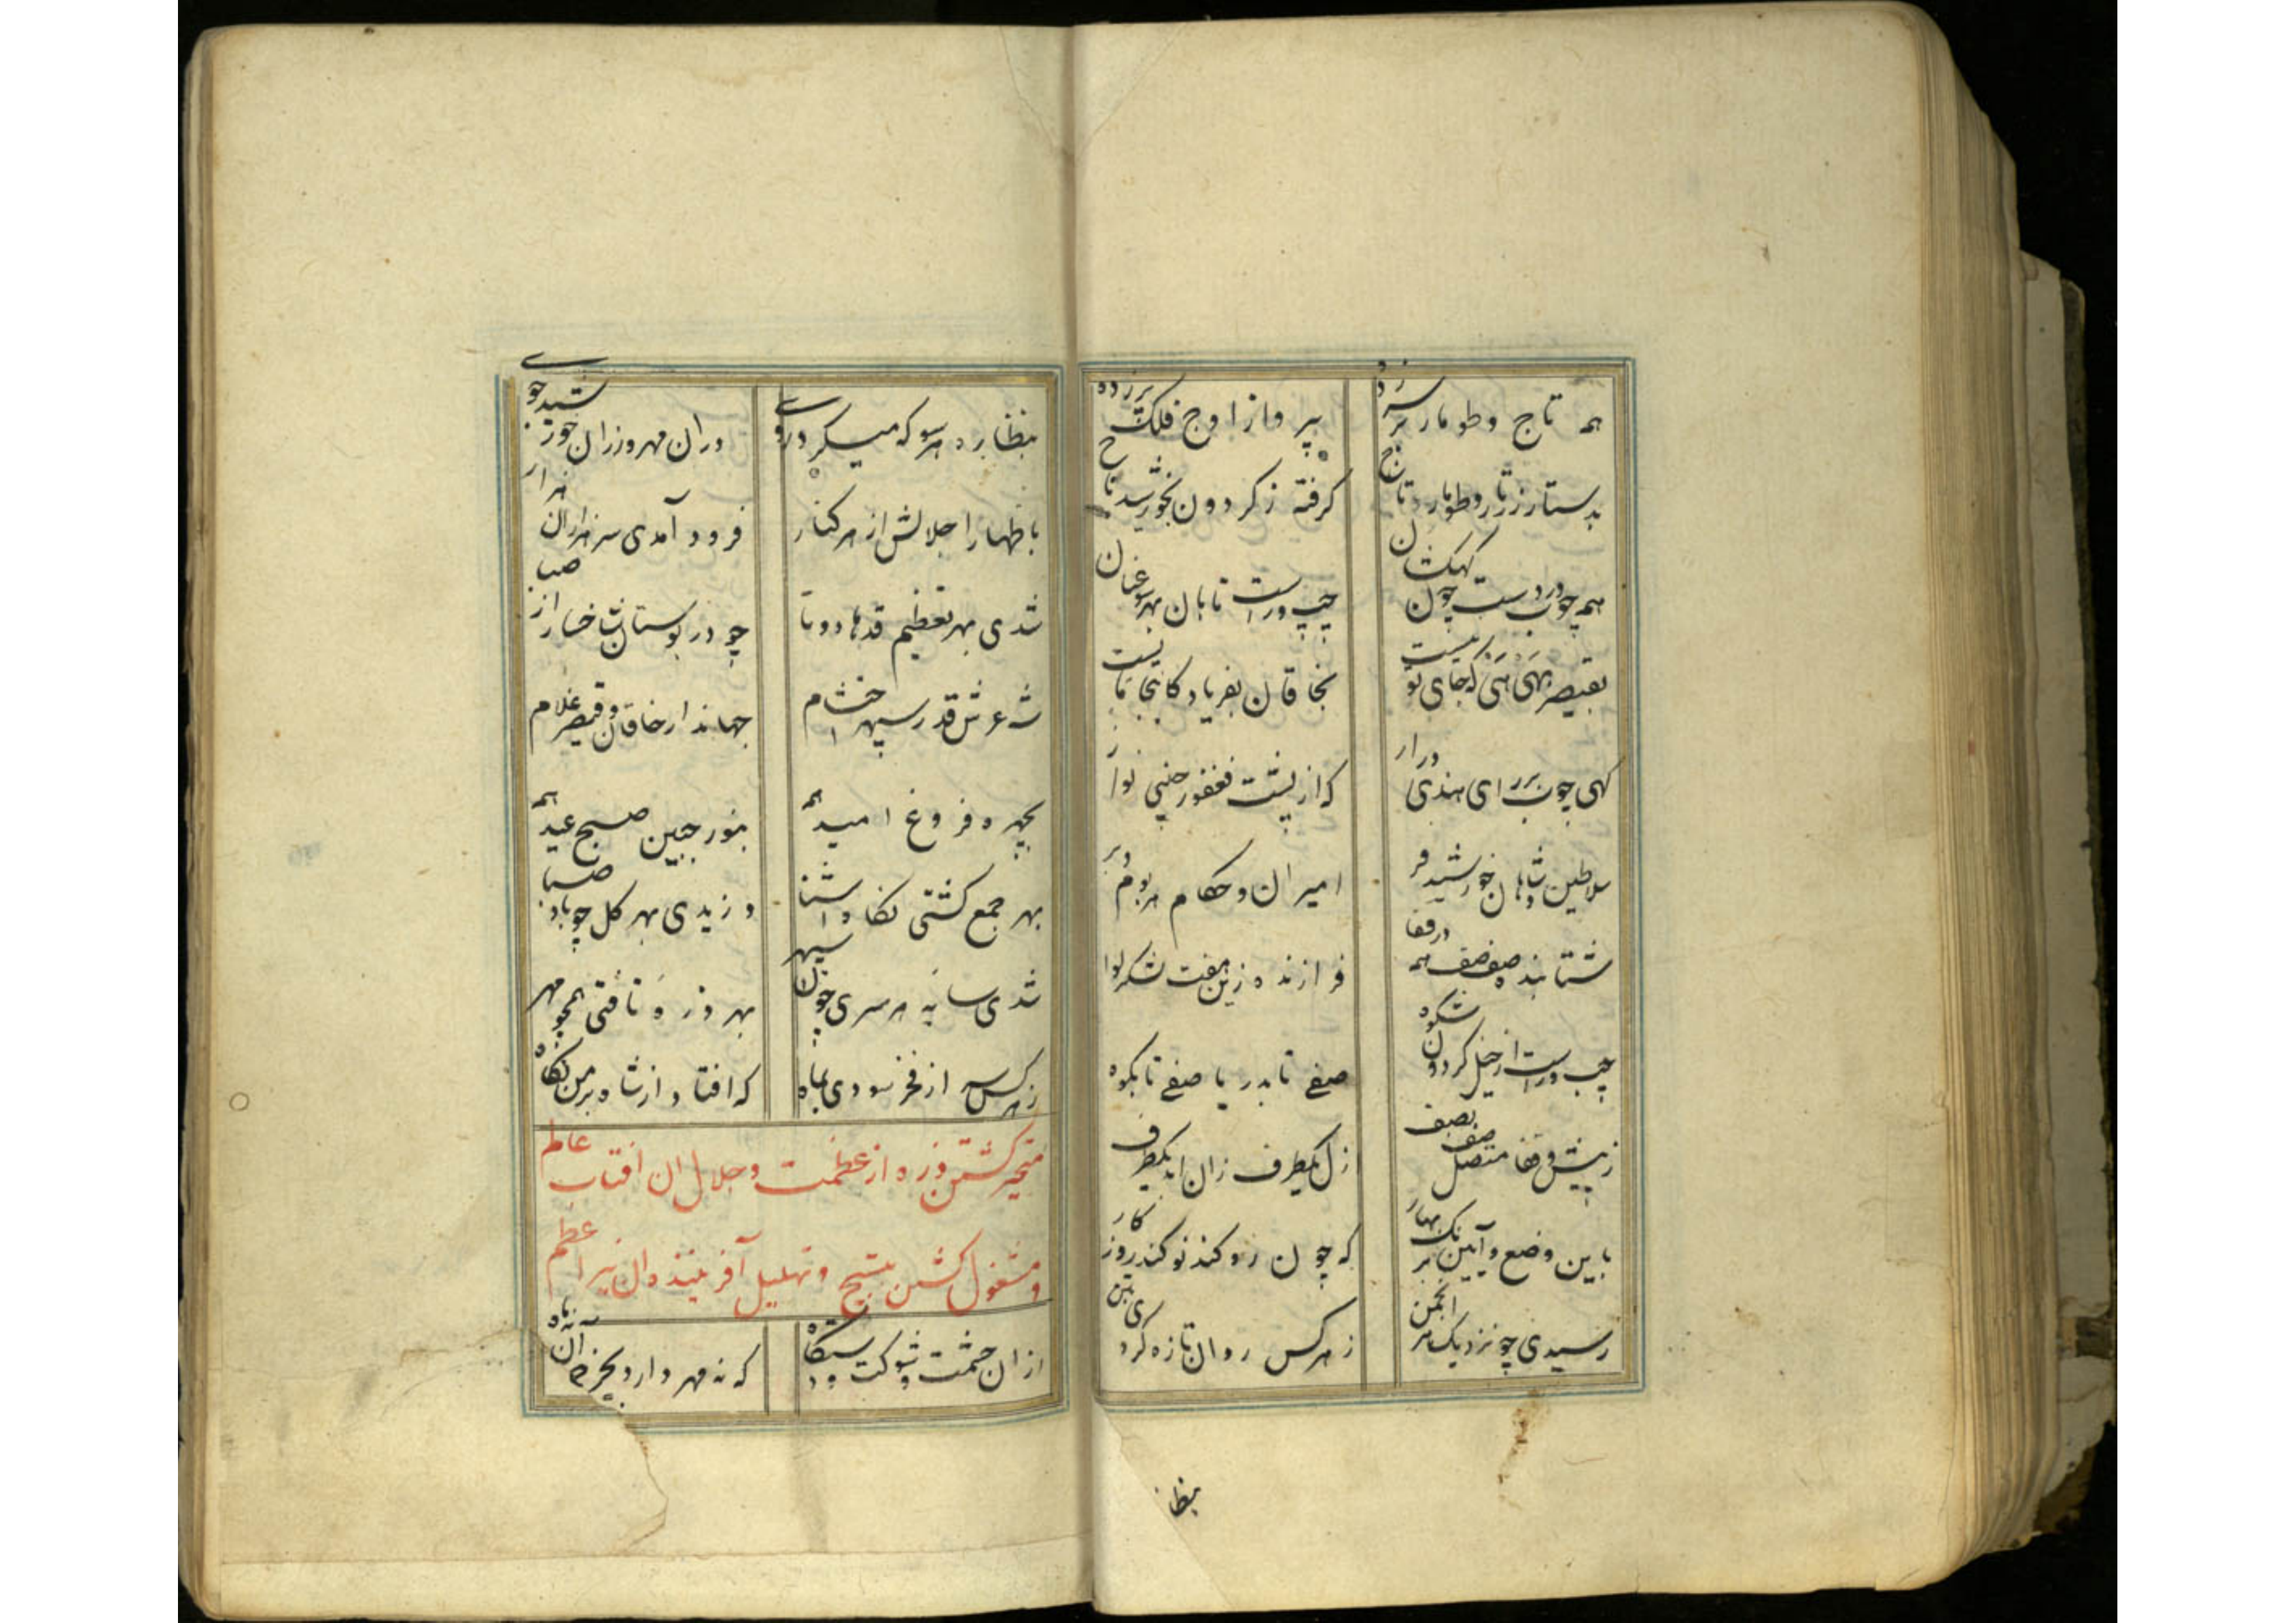 همه تاج و طومار بر سر زده
بپرواز اوج فلک بر زده
بدستار زرتار و طومار و تاج
گرفته ز گردون بخورشید باج
همه چوب در دست چون کهکشان
چپ و راست تابان بهر سو عنان
بقیصر نهی هی که جای تو نیست
بخاقان بفریاد کاینجا مایست
گهی چوب بر رای هندی دراز
که از پشت فغفور چینی نواز
سلاطین و شاهان خورشید فر
امیران و حکام هر بوم و بر
شتابنده صف صف همه در قفا
فرازنده زین هفت لشکر لوا
چپ و راست از خیل گردون شکوه
صفی تا بدریا صفی تا بکوه
ز پیش و قفا متصل صف بصف
ازل یکطرف زان ابد یکطرف
باین وضع و آیین برنگ بهار
که چون رو کند نو کند روزگار
رسیدی چو نزدیک هر انجمن
ز هر کس روان تازه کردی بتن
بنظا
بنظاره هر سو که میکرد روی
در آن مهر وزان خور شیدجوی
باظهار اجلالش از هر کنار
فرود آمدی سر هزاران هزار
شدی بهر تعظیم قدها دوتا
چو در بوستان شاخسار از صبا
شه عرش قدر سپهر احتشام
جهاندار خاقان و قیصر غلام
بچهره فروغ امید همه
بنور جبین صبح عید همه
بهر جمع گشتی نگاه آشنا
وزیدی بهر گل چو باد صبا
شدی سایه هر سری چون سپهر
بهر ذره تافتی همچو مهر
ز هر کس سر از فخر سودی بماه
که افتاد از شاه بر من نگاه
متحیر گشتن ذره از عظمت و جلال آن آفتاب عالم
و مشغول گشتن بتسبیح و تهلیل آفریننده آن نیر اعظم
از آن حشمت و شوکت و دستگاه
که نه مهر دارد بجز آن نه ماه